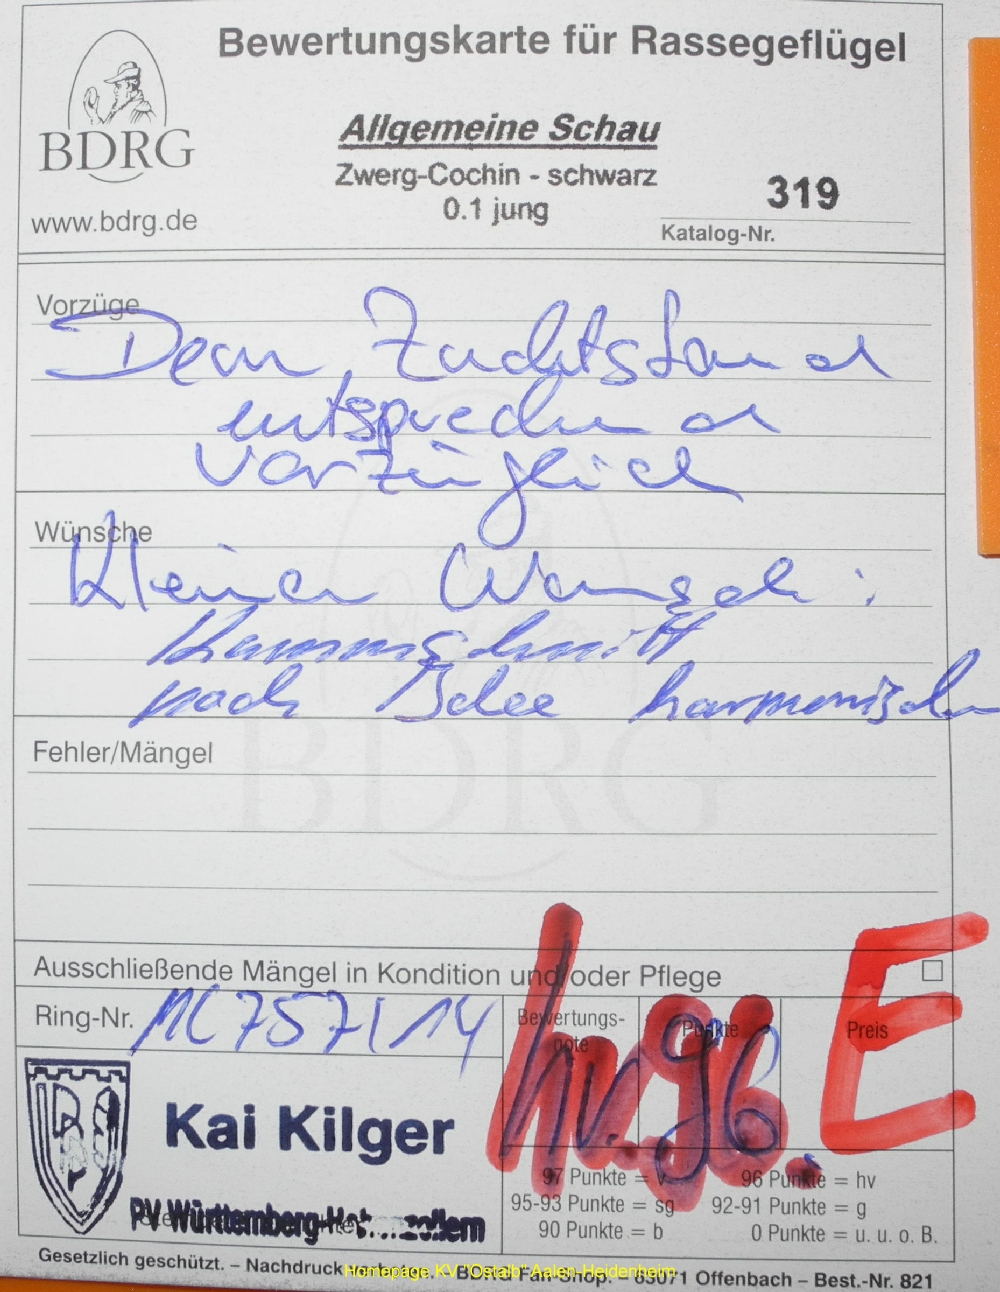 Bewertungskarte für Rassegeflügel
BDRG
www.bdrg.de
Allgemeine Schau
Zwerg-Cochin - schwarz
0.1 jung
319
Katalog-Nr.
Vorzüge
Dem Zuchtstand
entsprechend
vorzüglich
Wünsche
Kleiner Wunsch:
Kammschnitt
nach Idee harmonischer
BDRG
Fehler/Mängel
Ausschließende Mängel in Kondition und/oder Pflege
Ring-Nr. 757/14
Bewertungs-
note
Punkte
Preis
hv. 96. E
Kai Kilger
PV Württemberg-Hohenzollern
97 Punkte = v 96 Punkte = hv
95-93 Punkte = sg 92-91 Punkte = g
90 Punkte = b 0 Punkte = u. u. o. B.
Gesetzlich geschützt. – Nachdruck verboten. – BDRG Fan Shop. 63071 Offenbach – Best.-Nr. 821
Homepage KV "Ostalb" Aalen-Heidenheim